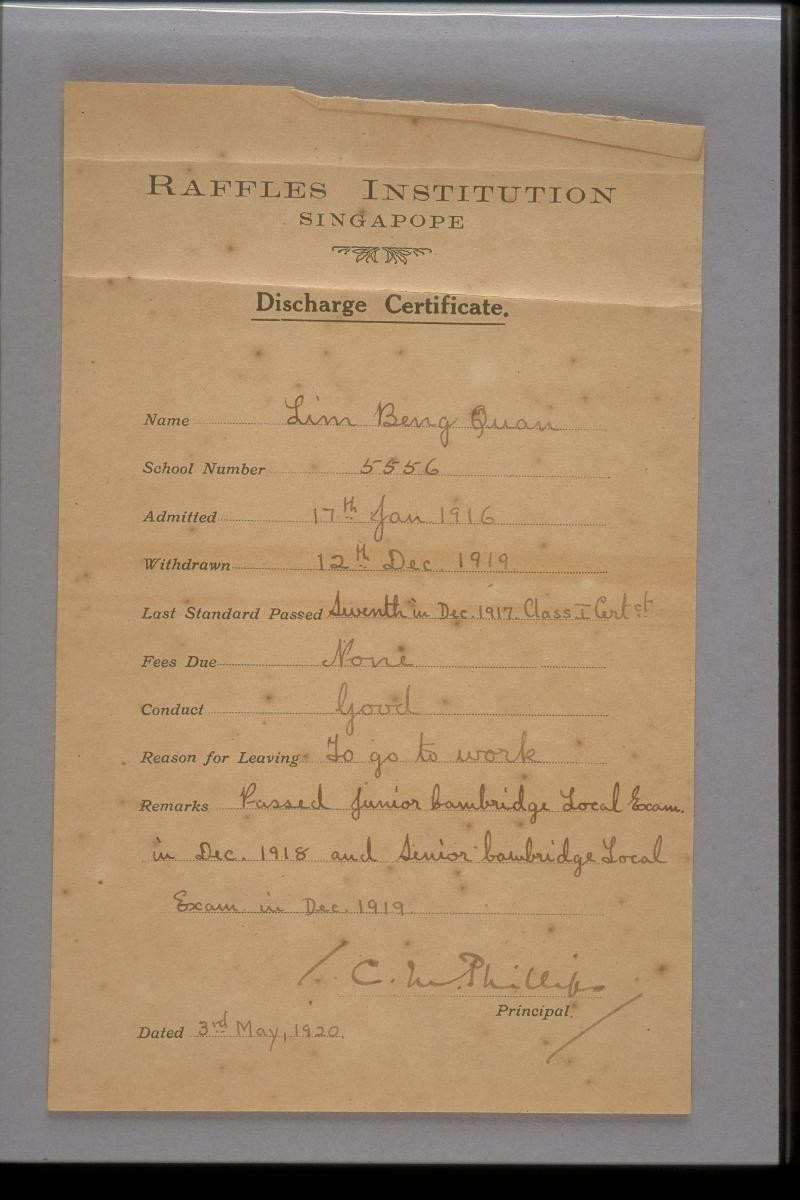 RAFFLES INSTITUTION
SINGAPOPE
Discharge Certificate.
Name Lim Beng Quan
School Number 5556
Admitted 17th Jan 1916
Withdrawn 12th Dec. 1919
Last Standard Passed Seventh in Dec. 1917. Class I Certct
Fees Due None
Conduct Good
Reason for Leaving To go to work
Remarks Passed Junior Cambridge Local Exam.
in Dec. 1918 and Senior Cambridge Local
Exam. in Dec. 1919.
C. M. Phillips
Principal.
Dated 3rd May, 1920.